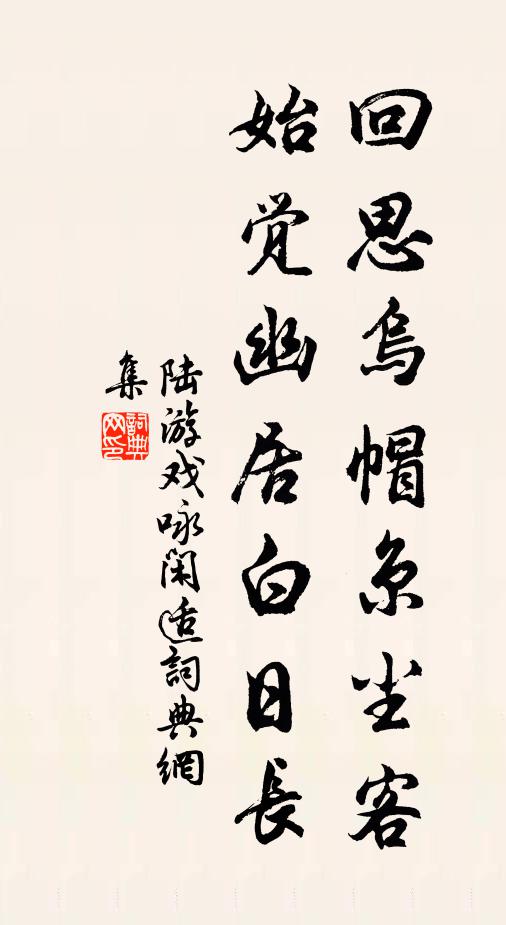 回思烏帽京尘客
始觉幽居白日長
陆游戏咏闲适詞典網
集
詞典网印